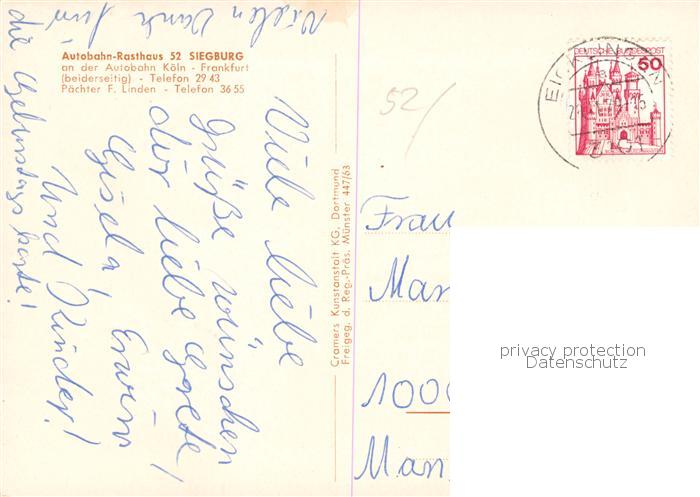 Autobahn-Rasthaus 52 SIEGBURG
an der Autobahn Köln - Frankfurt
(beiderseitig) - Telefon 29 43
Pächter F. Linden - Telefon 36 55
Viele liebe
Grüße wünschen
dir liebe Grete!
Gisela, Erwin
Und Kinder!
Vielen Dank für
die Geburtstagskarte!
52/
Cramers Kunstanstalt KG. Dortmund
Freigeg. d. Reg.-Präs. Münster 447/63
DEUTSCHE BUNDESPOST
50
Frau
Man
1000
Man
privacy protection
Datenschutz